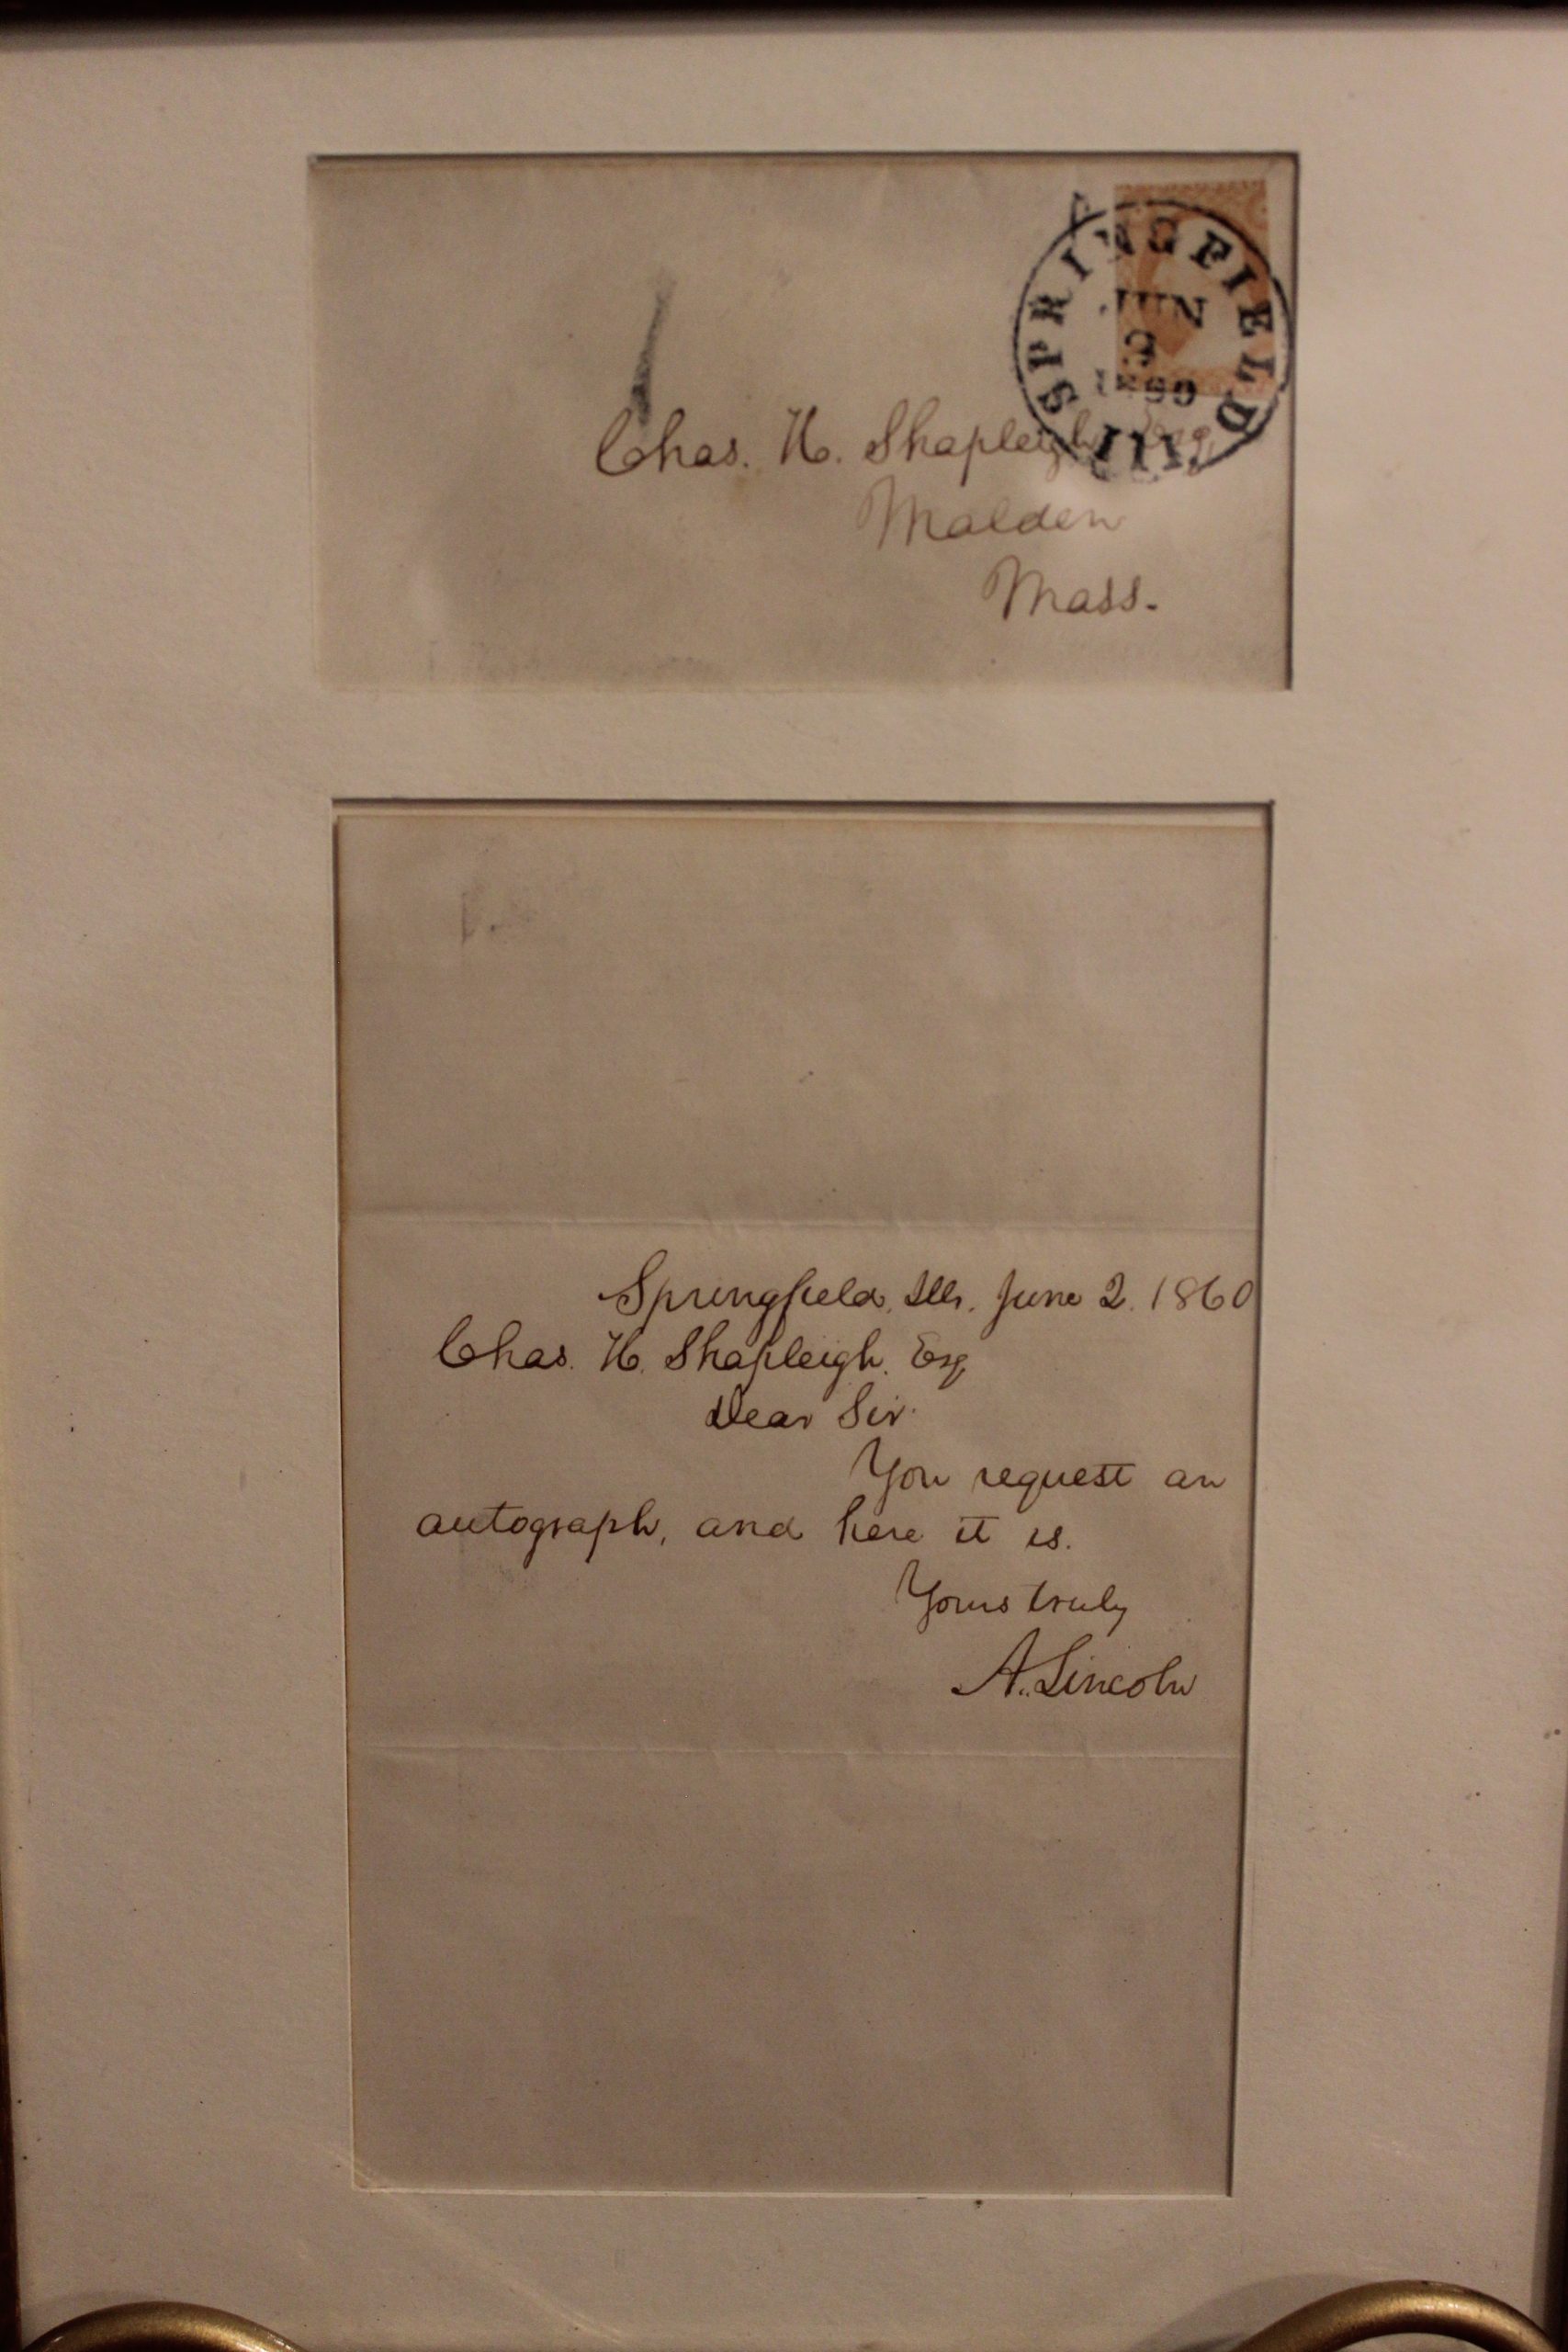 SPRINGFIELD
JUN
1860
Ill.
Chas. H. Shapleigh Esq.
Malden
Mass.
Springfield, Ills. June 2. 1860
Chas. H. Shapleigh. Esq
Dear Sir.
You request an
autograph, and here it is.
Yours truly
A. Lincoln